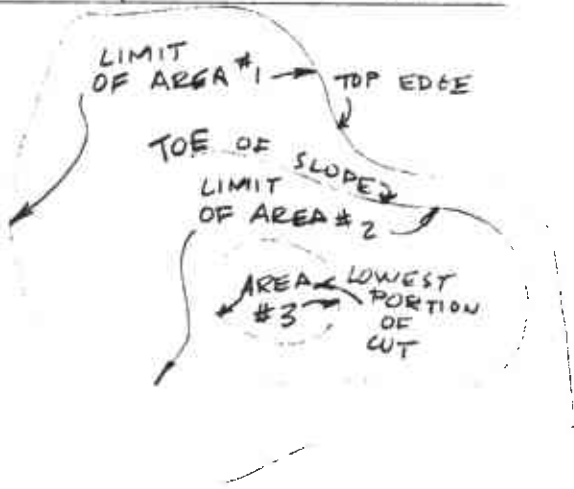 LIMIT
OF AREA #1
TOP EDGE
TOE OF SLOPE
LIMIT
OF AREA #2
AREA
#3
LOWEST
PORTION
OF
CUT